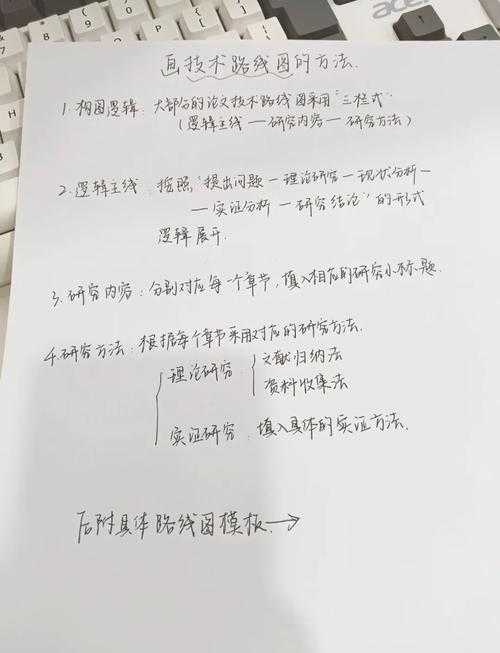 画技术路线图的方法.
1. 构图逻辑：大部分的论文技术路线图采用"三栏式"
(逻辑主线 — 研究内容 — 研究方法)
2. 逻辑主线：按照"提出问题 — 理论研究 — 现状分析 —
— 实证分析 — 研究结论"的形式
逻辑展开.
3. 研究内容：分别对应每一个章节，填入相应的研究小标题.
4. 研究方法：根据每个章节采用对应的研究方法.
理论研究：文献归纳法
资料收集法
实证研究：填入具体的实证方法.
后附具体路线图模板 →
acer